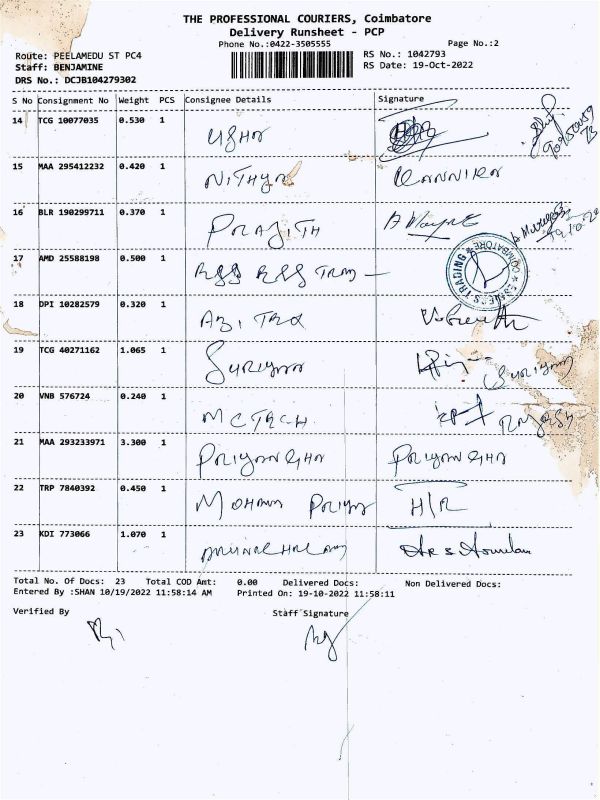 THE PROFESSIONAL COURIERS, Coimbatore
Delivery Runsheet - PCP
Phone No.:0422-3505555 Page No.:2
Route: PEELAMEDU ST PC4 RS No.: 1042793
Staff: BENJAMINE RS Date: 19-Oct-2022
DRS No.: DCJB104279302
S No Consignment No Weight PCS Consignee Details Signature
14 TCG 10077035 0.530 1 USHA
15 MAA 295412232 0.420 1 NITHYA KANNIKA
16 BLR 190299711 0.370 1 PRAJITH
17 AMD 25588198 0.500 1 RSS RSS TRAD
COIMBATORE
TRADING
18 DPI 10282579 0.320 1
19 TCG 40271162 1.065 1 SURIYAA
20 VNB 576724 0.240 1 MCTECH
21 MAA 293233971 3.300 1 PRIYANGHA PRIYANGHA
22 TRP 7840392 0.450 1 MOHANA PRIYA H/R
23 KDI 773066 1.070 1
Total No. Of Docs: 23 Total COD Amt: 0.00 Delivered Docs: Non Delivered Docs:
Entered By :SHAN 10/19/2022 11:58:14 AM Printed On: 19-10-2022 11:58:11
Verified By Staff Signature